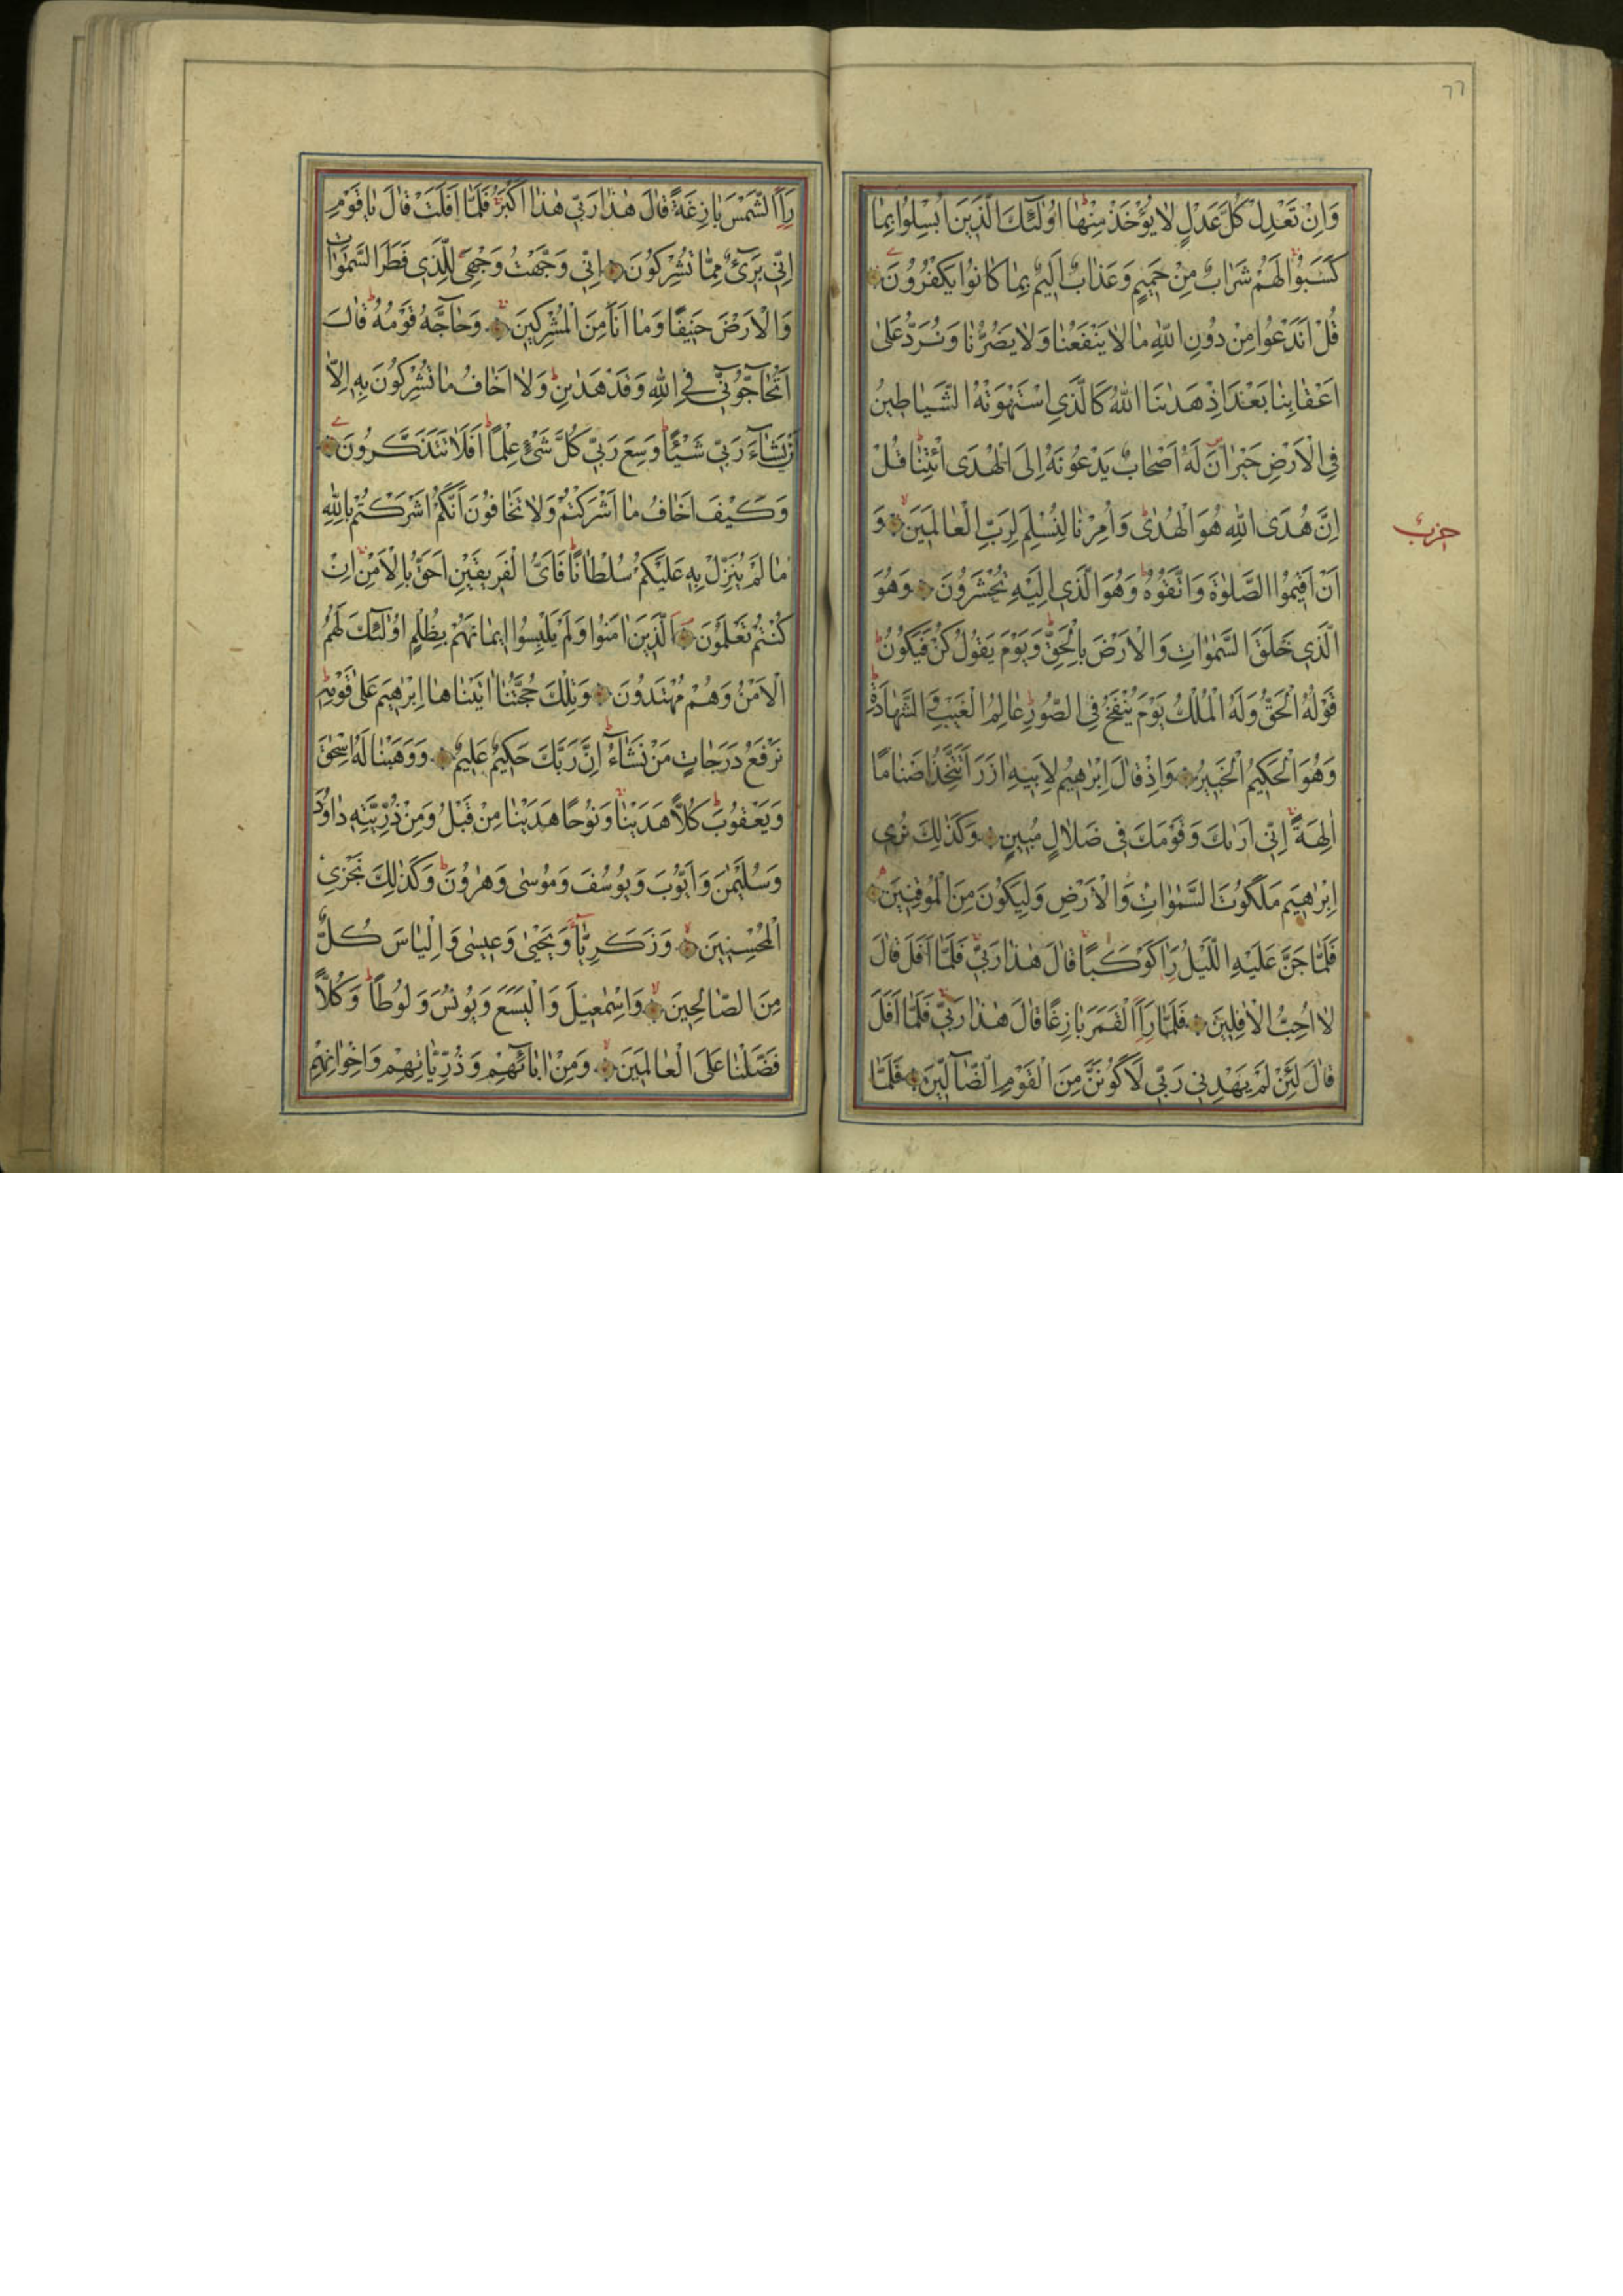 ٦٦
وَاِنْ تَعْدِلْ كُلَّ عَدْلٍ لَا يُؤْخَذْ مِنْهَا اُولٰٓئِكَ الَّذٖينَ اُبْسِلُوا بِمَا
كَسَبُوا لَهُمْ شَرَابٌ مِنْ حَمٖيمٍ وَعَذَابٌ اَلٖيمٌ بِمَا كَانُوا يَكْفُرُونَ
قُلْ اَنَدْعُوا مِنْ دُونِ اللّٰهِ مَا لَا يَنْفَعُنَا وَلَا يَضُرُّنَا وَنُرَدُّ عَلٰى
اَعْقَابِنَا بَعْدَ اِذْ هَدٰينَا اللّٰهُ كَالَّذِي اسْتَهْوَتْهُ الشَّيَاطٖينُ
فِي الْاَرْضِ حَيْرَانَ لَهُ اَصْحَابٌ يَدْعُونَهُ اِلَى الْهُدَى ائْتِنَا قُلْ
اِنَّ هُدَى اللّٰهِ هُوَ الْهُدٰى وَاُمِرْنَا لِنُسْلِمَ لِرَبِّ الْعَالَمٖينَ وَ
حزب
اَنْ اَقٖيمُوا الصَّلٰوةَ وَاتَّقُوهُ وَهُوَ الَّذٖي اِلَيْهِ تُحْشَرُونَ وَهُوَ
الَّذٖي خَلَقَ السَّمٰوَاتِ وَالْاَرْضَ بِالْحَقِّ وَيَوْمَ يَقُولُ كُنْ فَيَكُونُ
قَوْلُهُ الْحَقُّ وَلَهُ الْمُلْكُ يَوْمَ يُنْفَخُ فِي الصُّورِ عَالِمُ الْغَيْبِ وَالشَّهَادَةِ
وَهُوَ الْحَكٖيمُ الْخَبٖيرُ وَاِذْ قَالَ اِبْرٰهٖيمُ لِاَبٖيهِ اٰزَرَ اَتَتَّخِذُ اَصْنَامًا
اٰلِهَةً اِنّٖي اَرٰيكَ وَقَوْمَكَ فٖي ضَلَالٍ مُبٖينٍ وَكَذٰلِكَ نُرٖي
اِبْرٰهٖيمَ مَلَكُوتَ السَّمٰوَاتِ وَالْاَرْضِ وَلِيَكُونَ مِنَ الْمُوقِنٖينَ
فَلَمَّا جَنَّ عَلَيْهِ الَّيْلُ رَاٰ كَوْكَبًا قَالَ هٰذَا رَبّٖي فَلَمَّا اَفَلَ قَالَ
لَا اُحِبُّ الْاٰفِلٖينَ فَلَمَّا رَاَ الْقَمَرَ بَازِغًا قَالَ هٰذَا رَبّٖي فَلَمَّا اَفَلَ
قَالَ لَئِنْ لَمْ يَهْدِنٖي رَبّٖي لَاَكُونَنَّ مِنَ الْقَوْمِ الضَّآلّٖينَ فَلَمَّا
رَاَ الشَّمْسَ بَازِغَةً قَالَ هٰذَا رَبّٖي هٰذَا اَكْبَرُ فَلَمَّا اَفَلَتْ قَالَ يَا قَوْمِ
اِنّٖي بَرٖٓيءٌ مِمَّا تُشْرِكُونَ اِنّٖي وَجَّهْتُ وَجْهِيَ لِلَّذٖي فَطَرَ السَّمٰوَاتِ
وَالْاَرْضَ حَنٖيفًا وَمَا اَنَا مِنَ الْمُشْرِكٖينَ وَحَآجَّهُ قَوْمُهُ قَالَ
اَتُحَآجُّونّٖي فِي اللّٰهِ وَقَدْ هَدٰينِ وَلَا اَخَافُ مَا تُشْرِكُونَ بِهٖ اِلَّا
اَنْ يَشَآءَ رَبّٖي شَيْئًا وَسِعَ رَبّٖي كُلَّ شَيْءٍ عِلْمًا اَفَلَا تَتَذَكَّرُونَ
وَكَيْفَ اَخَافُ مَا اَشْرَكْتُمْ وَلَا تَخَافُونَ اَنَّكُمْ اَشْرَكْتُمْ بِاللّٰهِ
مَا لَمْ يُنَزِّلْ بِهٖ عَلَيْكُمْ سُلْطَانًا فَاَيُّ الْفَرٖيقَيْنِ اَحَقُّ بِالْاَمْنِ اِنْ
كُنْتُمْ تَعْلَمُونَ اَلَّذٖينَ اٰمَنُوا وَلَمْ يَلْبِسُوا اٖيمَانَهُمْ بِظُلْمٍ اُولٰٓئِكَ لَهُمُ
الْاَمْنُ وَهُمْ مُهْتَدُونَ وَتِلْكَ حُجَّتُنَا اٰتَيْنَاهَا اِبْرٰهٖيمَ عَلٰى قَوْمِهٖ
نَرْفَعُ دَرَجَاتٍ مَنْ نَشَآءُ اِنَّ رَبَّكَ حَكٖيمٌ عَلٖيمٌ وَوَهَبْنَا لَهُ اِسْحٰقَ
وَيَعْقُوبَ كُلًّا هَدَيْنَا وَنُوحًا هَدَيْنَا مِنْ قَبْلُ وَمِنْ ذُرِّيَّتِهٖ دَاوُدَ
وَسُلَيْمٰنَ وَاَيُّوبَ وَيُوسُفَ وَمُوسٰى وَهٰرُونَ وَكَذٰلِكَ نَجْزِي
الْمُحْسِنٖينَ وَزَكَرِيَّا وَيَحْيٰى وَعٖيسٰى وَاِلْيَاسَ كُلٌّ
مِنَ الصَّالِحٖينَ وَاِسْمٰعٖيلَ وَالْيَسَعَ وَيُونُسَ وَلُوطًا وَكُلًّا
فَضَّلْنَا عَلَى الْعَالَمٖينَ وَمِنْ اٰبَآئِهِمْ وَذُرِّيَّاتِهِمْ وَاِخْوَانِهِمْ